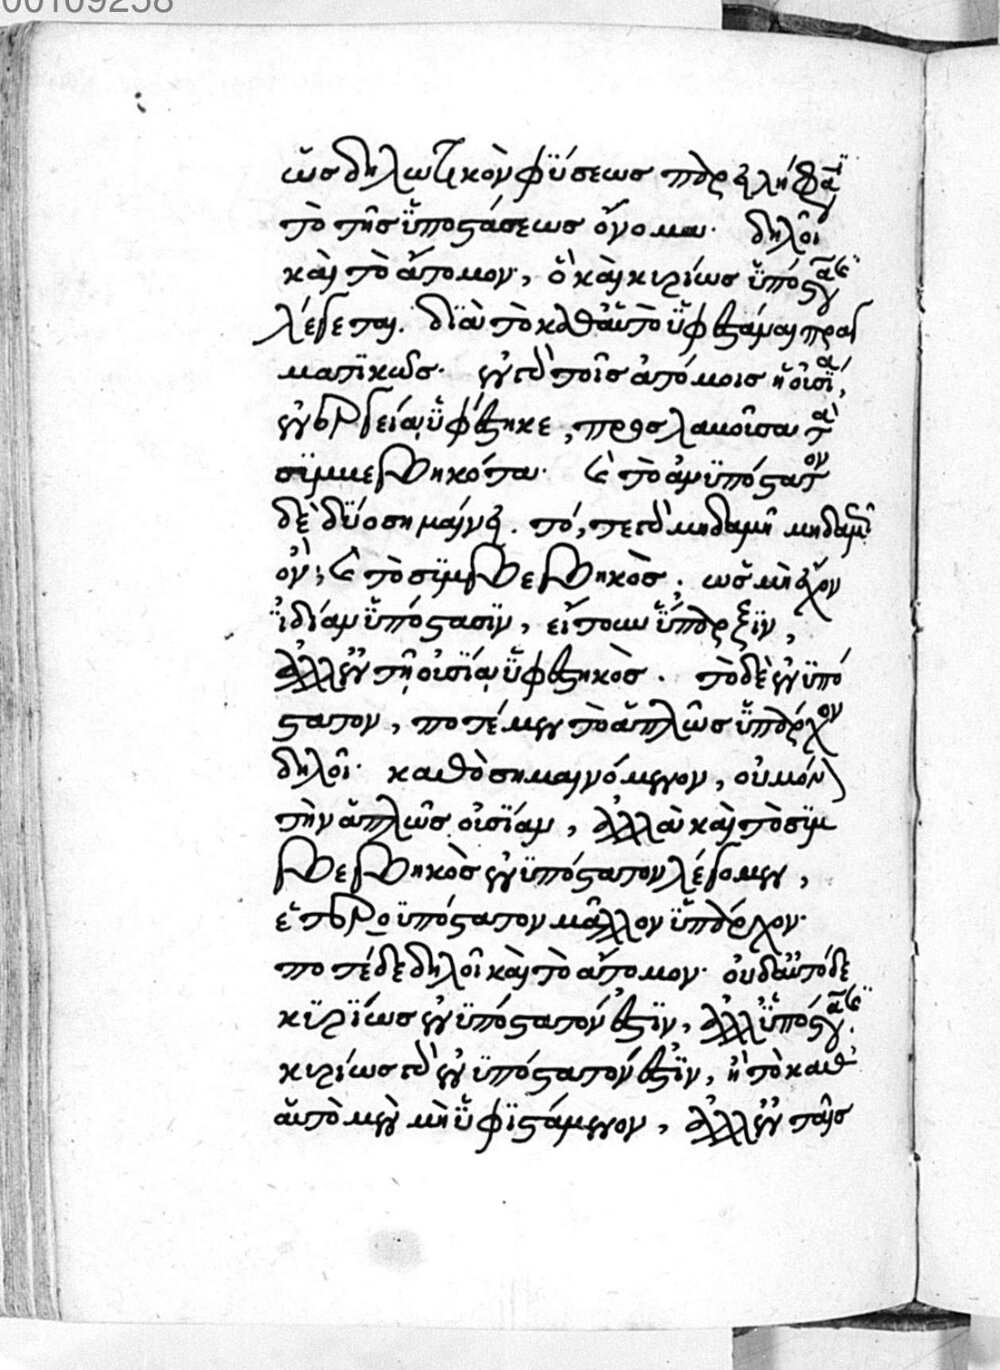 00109258
ὡσ δηλωτικὸν φϋσεως παρείληφαϊ
τὸ τῆσ ϋποστάσεωσ ὄνομα· δηλοῖ
καὶ τὸ ἄτομον, ὃ καὶ κιρίωσ ϋπόστασϊσ
λέγεται. διὰ τὸ καθαὐτὸ ϋφίστάμαι πραγ
ματϊκωσ· ἐν δὲ τοῖσ ἀτόμοισ ἡ οἰσία,
ἐνεργεία ϋφέστηκε, προσλαμοῖσα τὰ
σϋμμεβηκότα· καὶ τὸ ἀνϋπόστατον
δὲ δϋο σημαίνει. τό, τε μηδαμῆ μηδαμῆ
ὀν, καὶ τὸ σϊμβεβηκὸσ. ωσ μὴ ἔχον
ϊδίαν ϋπόστασϊν, εἴτουν ϋπαρξϊν,
ἀλλ' ἐν τῆ οἰσία ϋφεστηκὸσ. τὸ δὲ ἐνϋπό
στατον, ποτέ μεν τὸ ἁπλῶσ ϋπάρχον
δηλοῖ· καθὸ σημαινόμενον, οὐ μόνον
τὴν ἁπλῶσ οἰσίαν, ἀλλὰ καὶ τὸ σϊμ
βεβηκὸσ ἐνϋπόστατον λέγομεν,
ἑτεροϋπόστατον μᾶλλον ϋπάρχον·
ποτέ δε δηλοῖ καὶ τὸ ἄτομον· οὐδαὐτό δε
κϋρϊωσ ἐνϋπόστατόν ἐστϊν, ἀλλ' ϋπόστασϊσ.
κιρίωσ δὲ ἐνϋπόστατόν ἐστϊν, ἢ τὸ καθ'
ἁὐτὸ μὲν μὴ ϋφϊστάμενον, ἀλλ' ἐν τοῖσ